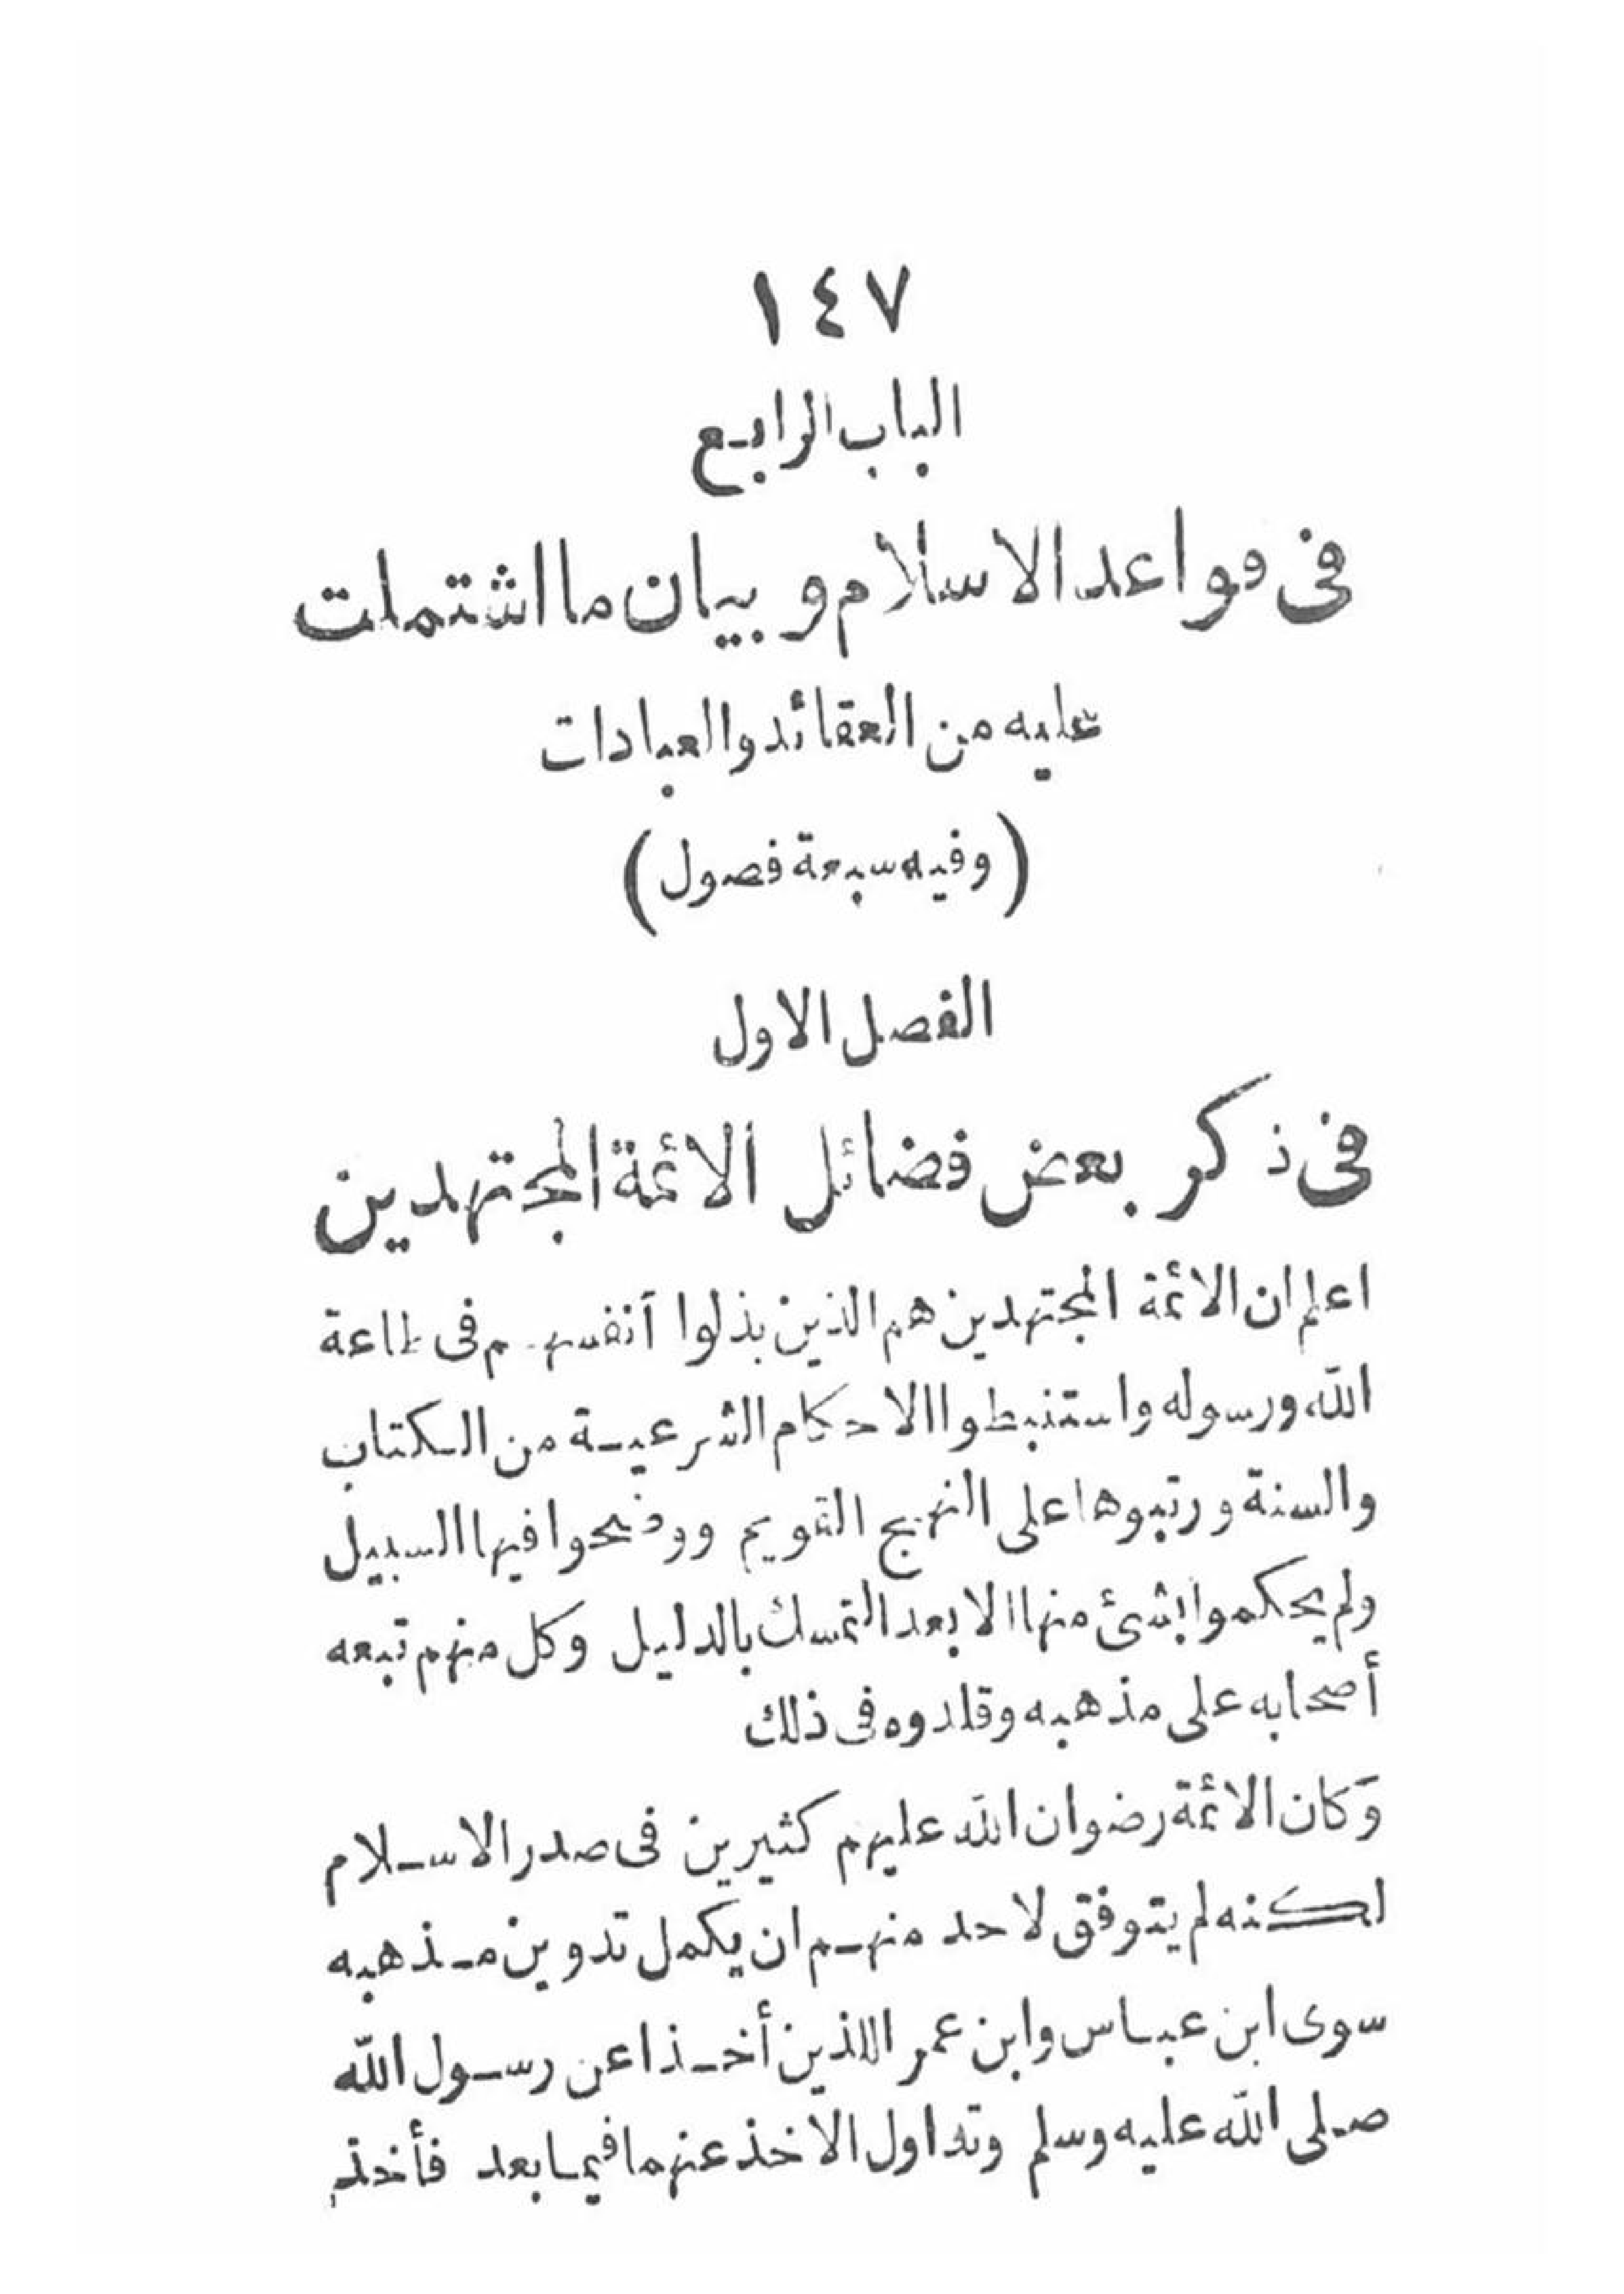 ١٤٧
الباب الرابع
فى قواعد الاسلام وبيان ما اشتملت
عليه من العقائد والعبادات
(وفيه سبعة فصول)
الفصل الاول
فى ذكر بعض فضائل الائمة المجتهدين
اعلم ان الائمة المجتهدين هم الذين بذلوا أنفسهم فى طاعة
الله ورسوله واستنبطوا الاحكام الشرعية من الكتاب
والسنة ورتبوها على النهج القويم ووضحوا فيها السبيل
ولم يحكموا بشئ منها الا بعد التمسك بالدليل وكل منهم تبعه
أصحابه على مذهبه وقلدوه فى ذلك
وكان الائمة رضوان الله عليهم كثيرين فى صدر الاسلام
لكنه لم يتوفق لاحد منهم ان يكمل تدوين مذهبه
سوى ابن عباس وابن عمر اللذين أخذا عن رسول الله
صلى الله عليه وسلم وتداول الاخذ عنهما فيما بعد فأخذ